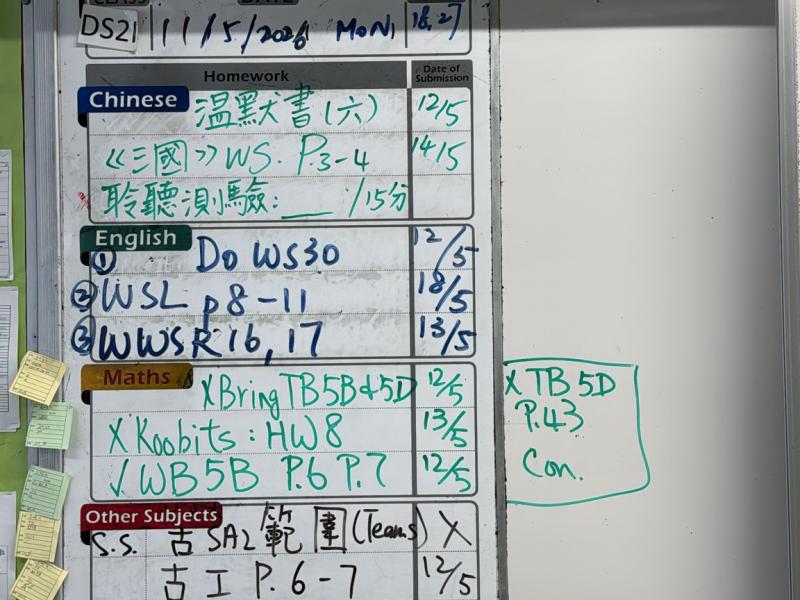 DS21 11/5/2026 MON 18, 27
Homework Date of Submission
Chinese 溫默書(六) 12/5
《三國》WS. P.3-4 14/5
聆聽測驗:___ /15分
English ① Do WS30 12/5
② WSL p8-11 18/5
③ WWSR 16, 17 13/5
Maths X Bring TB5B & 5D 12/5
X Koobits: HW8 13/5
✓ WB5B P.6 P.7 12/5
X TB 5D
P.43
Con.
Other Subjects S.S. SA2範圍(Teams) X
P.6-7 12/5